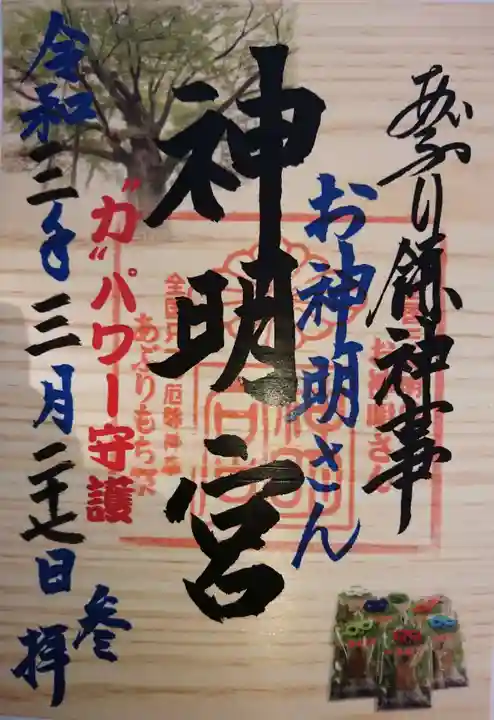 あぶり餅神事
お神明さん
神明宮
"力"パワー守護
令和三年三月二十七日
参拝
お神明さん
あぶりもち